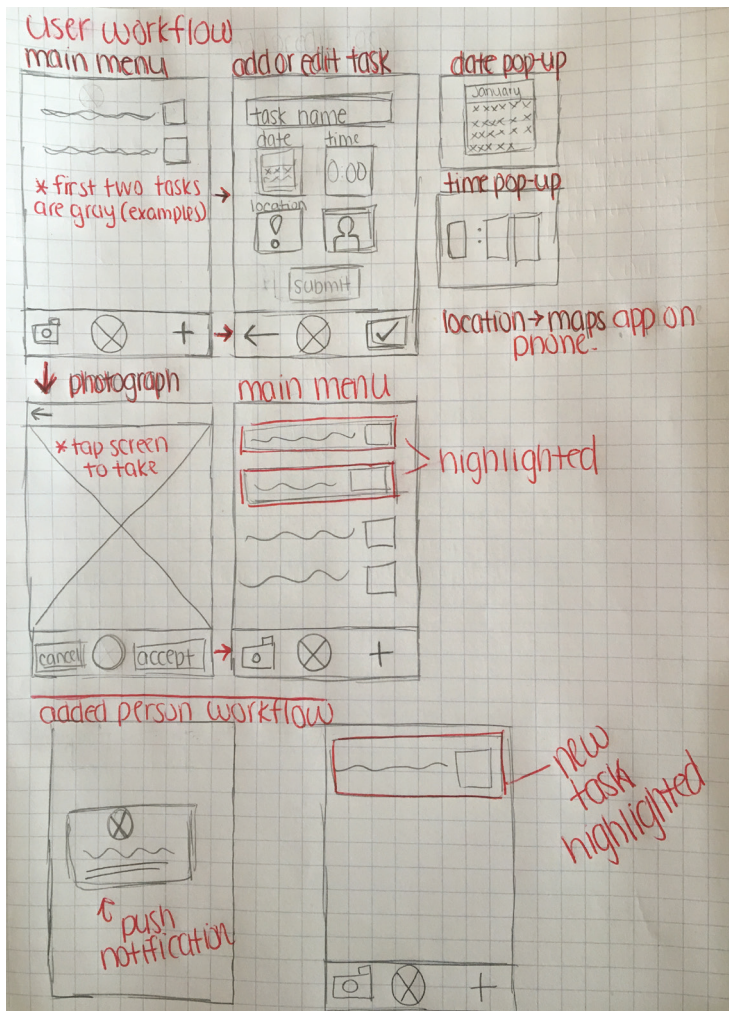 user workflow
main menu
* first two tasks
are gray (examples)
add or edit task
task name
date time
0:00
location
submit
date pop-up
January
x x x x x x
x x x x x x
x x x x x x
x x x x x
time pop-up
:
location → maps app on
phone.
photograph
* tap screen
to take
cancel accept
main menu
highlighted
added person workflow
push
notification
new
task
highlighted